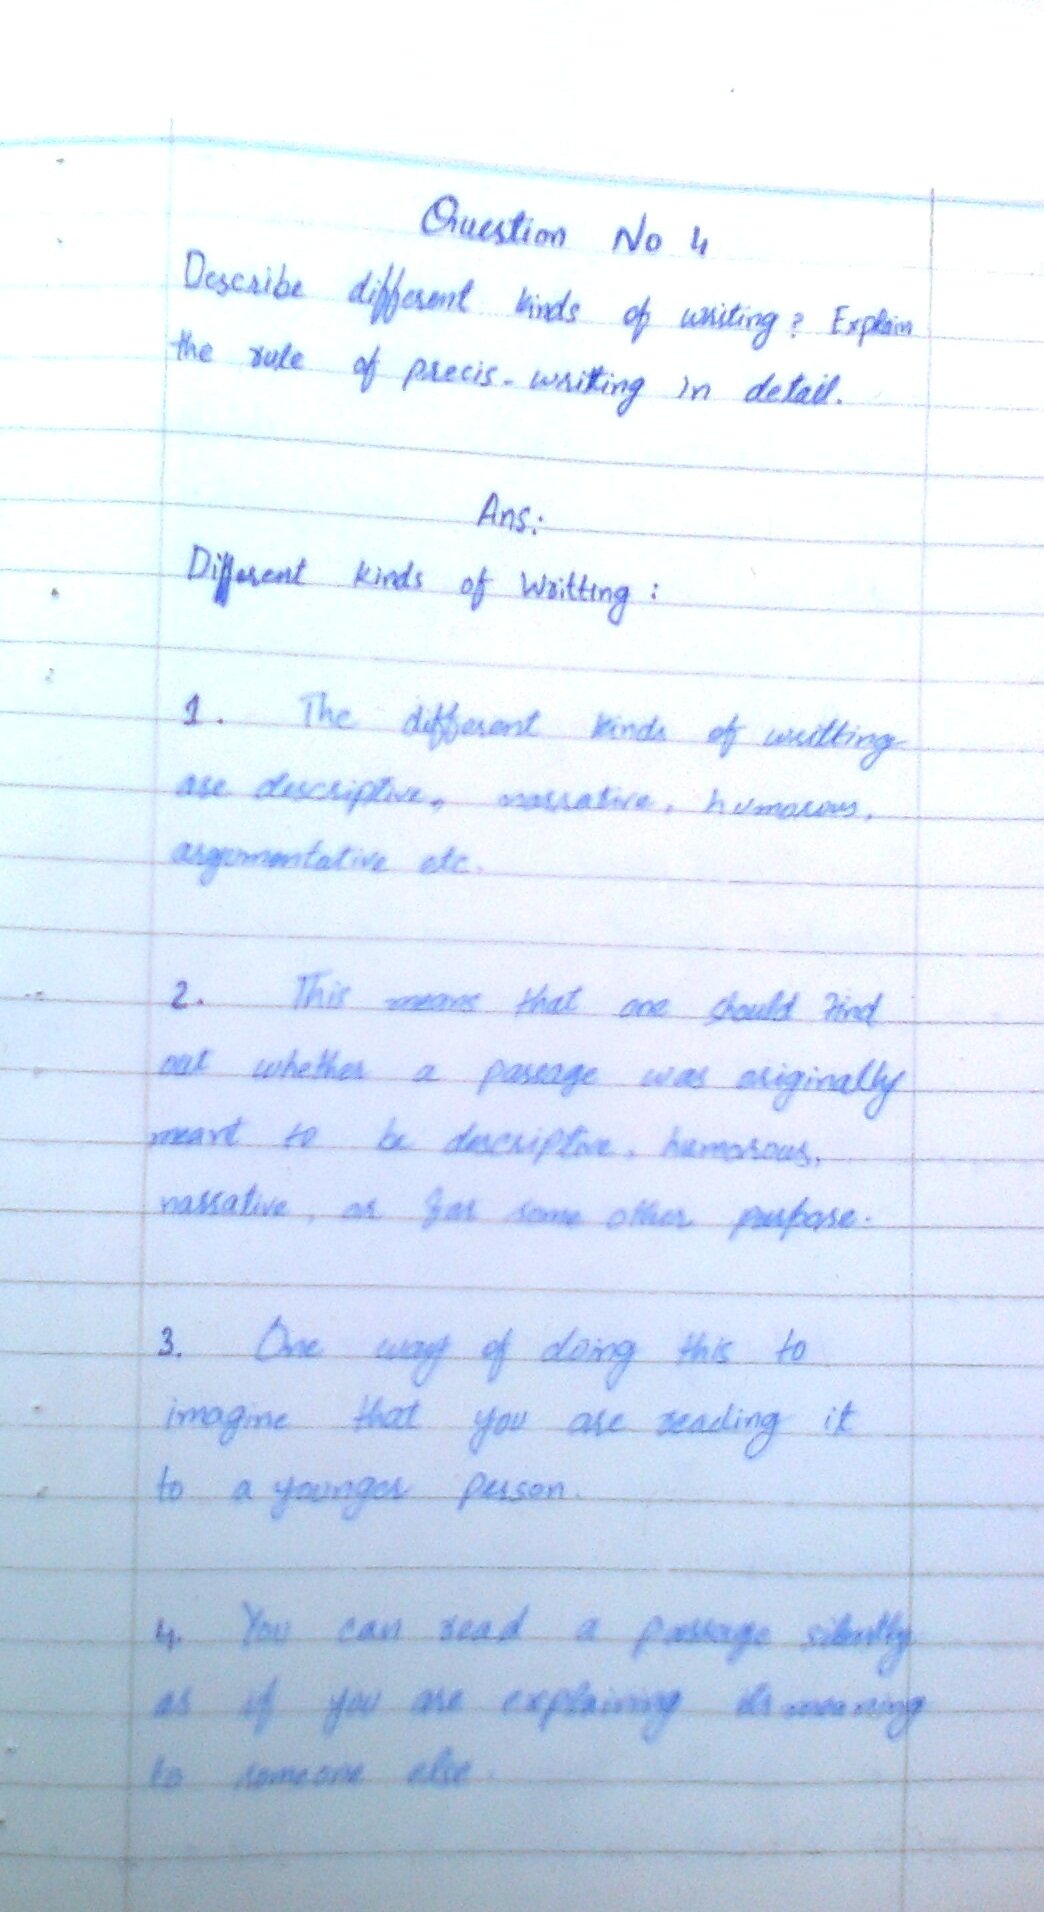 Question No 4
Describe different kinds of writing? Explain
the rule of precis-writing in detail.
Ans:
Different kinds of Writting :
1. The different kinds of writting
are descriptive, narrative, humorous,
argumentative etc.
2. This means that one should find
out whether a passage was originally
meant to be descriptive, humorous,
narrative, or for some other purpose.
3. One way of doing this to
imagine that you are reading it
to a younger person.
4. You can read a passage silently
as if you are explaining its meaning
to someone else.